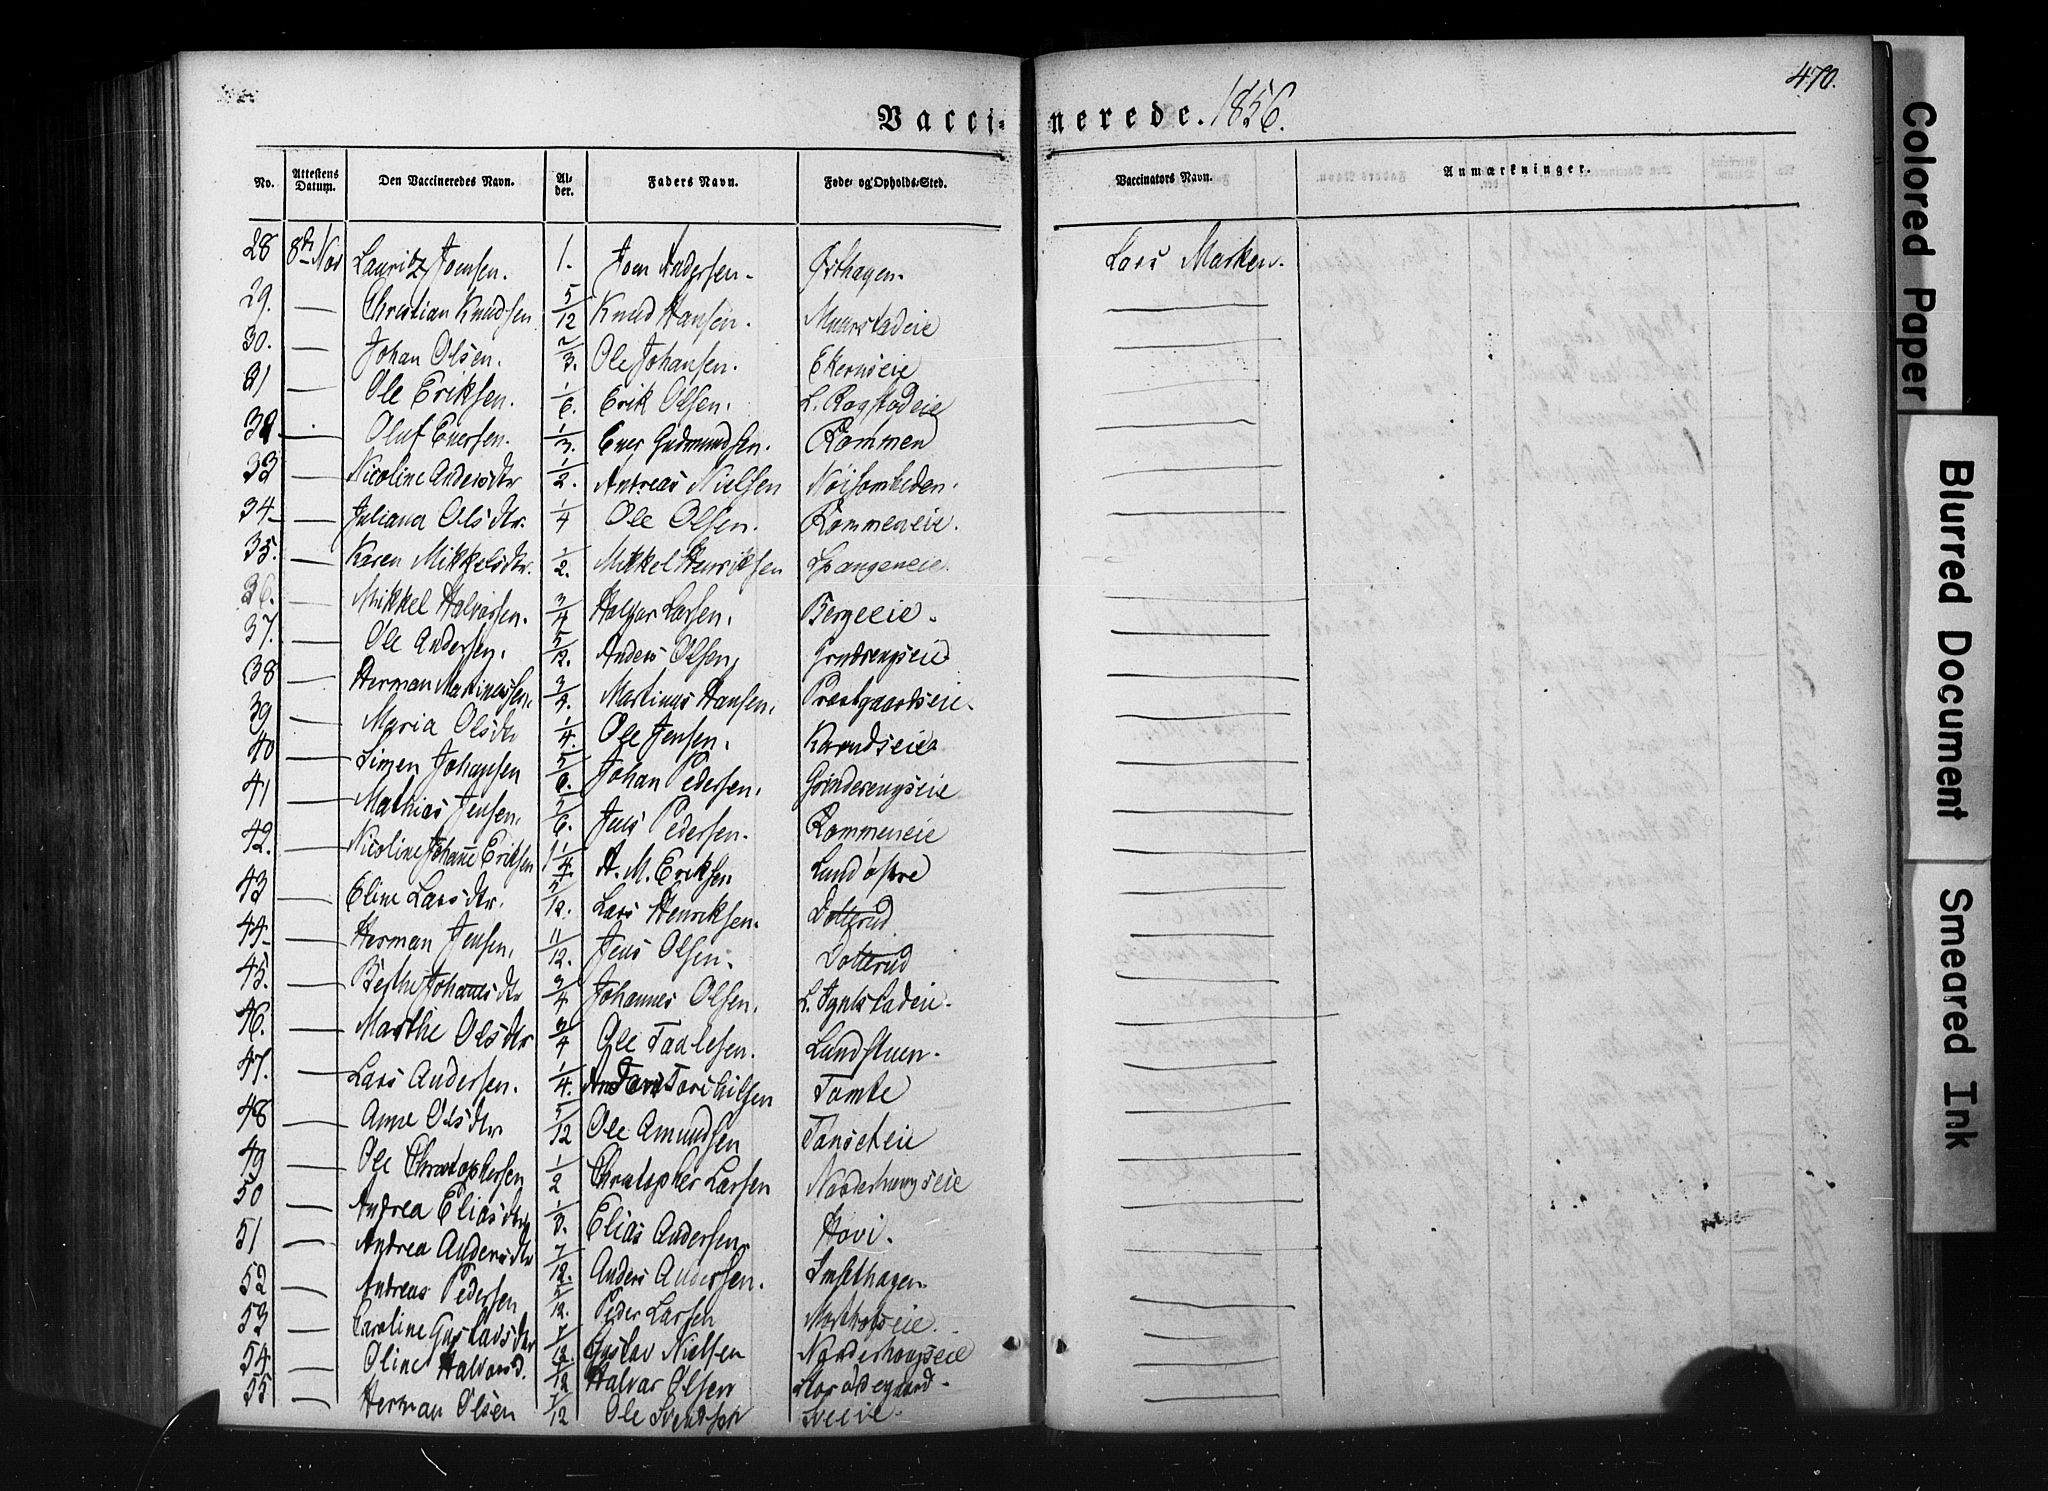 470.
Vaccinerede. 1856.
No. Attestens Datum. Den Vaccineredes Navn. Alder. Faders Navn. Føde- og Opholds-Sted. Vaccinators Navn. Anmærkninger.
28 8de Nov Lauritz Joensen. 1. Joen Andersen. Østhagen. Lars Marken.
29. — Christian Knudsen 5/12 Knud Hansen. Muurstadeie —
30. — Johan Olsen. 2/3. Ole Johansen. Ekernseie —
31 — Ole Eriksen. 1/6. Erik Olsen. L. Rogstadeie —
32 — Oluf Eversen. 1/3. Ever Gudmundsen. Rommen —
33 — Nicoline Andersdtr 1/2. Andreas Nielsen Nøisomheden. —
34 — Juliana Olsdtr. 1/4 Ole Olsen. Rommeneie. —
35. — Karen Mikkelsdtr. 1/2. Mikkel Henriksen Spangeneie. —
36. — Mikkel Halvorsen. 3/4 Halvor Larsen. Bergeeie. —
37. — Ole Andersen. 5/12. Anders Olsen, —
38 — Herman Martinussen. 3/4. Martinus Hansen. Præstgaardseie. —
39 — Maria Olsdtr 1/4. Ole Jensen. —
40 — Simen Johansen 5/6. Johan Pedersen. Grinderengseie —
41 — Mathias Jensen. 5/6. Jens Pedersen. Rommeneie —
42. — Nicoline Johanne Eriksen 1 1/4. A. M. Eriksen Lund østre —
43 — Eline Larsdtr. 5/12. Lars Henriksen. Dotterud —
44 — Herman Jensen. 11/12. Jens Olsen. Dotterud —
45. — Berthe Johannesdtr 3/4 Johannes Olsen. —
46. — Marthe Olsdtr 3/4 Ole Taalesen. Lundstuen. —
47. — Lars Andersen. 1/4. Tomte —
48 — Anne Olsdtr. 5/12 Ole Amundsen Tanseteie —
49 — Ole Christophersen 1/2 Christopher Larsen Norderhaugseie —
50 — Andrea Eliasdtr 1/3. Elias Andersen. Hovi. —
51 — Andrea Andersdtr 7/12. Anders Andersen. Smesthagen —
52 — Andreas Pedersen 5/12. Peder Larsen —
53 — Caroline Gustavsdtr 7/12. Gustav Nielsen Norderhougseie —
54 — Oline Halvorsd. 7/12 Halvor Olsen —
55 — Herman Olsen 7/12 Ole Svendsen Sveeie. —
Colored Paper
Blurred Document
Smeared Ink